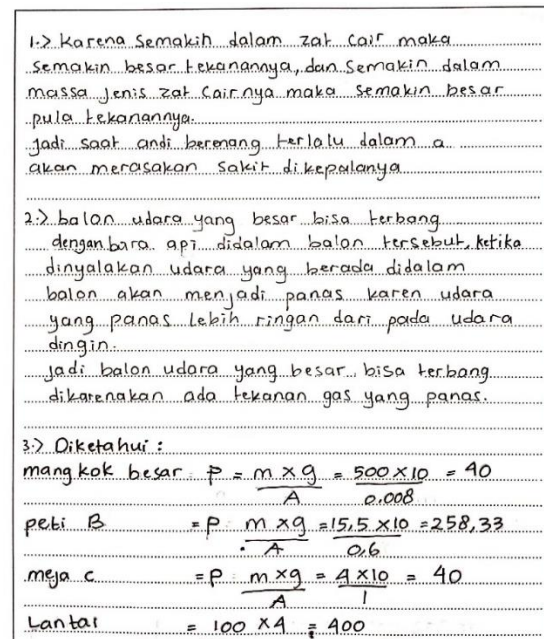 1.> Karena semakin dalam zat cair maka
semakin besar tekanannya, dan semakin dalam
massa jenis zat cairnya maka semakin besar
pula tekanannya.
Jadi saat andi berenang terlalu dalam a
akan merasakan sakit dikepalanya
2.> balon udara yang besar bisa terbang
dengan bara api didalam balon tersebut, ketika
dinyalakan udara yang berada didalam
balon akan menjadi panas karen udara
yang panas lebih ringan dari pada udara
dingin.
Jadi balon udara yang besar bisa terbang
dikarenakan ada tekanan gas yang panas.
3.> Diketahui :
mangkok besar P = m x g / A = 500 x 10 / 0.008 = 40
peti B = P m x g / A = 15,5 x 10 / 0,6 = 258,33
meja c = P m x g / A = 4 x 10 / 1 = 40
Lantai = 100 x 4 = 400